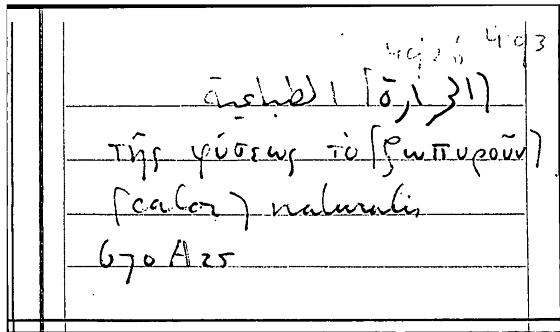 493
[الحرارة] الطباعية
τῆς φύσεως τὸ [ζωπυροῦν]
[calor] naturalis
670 A 25